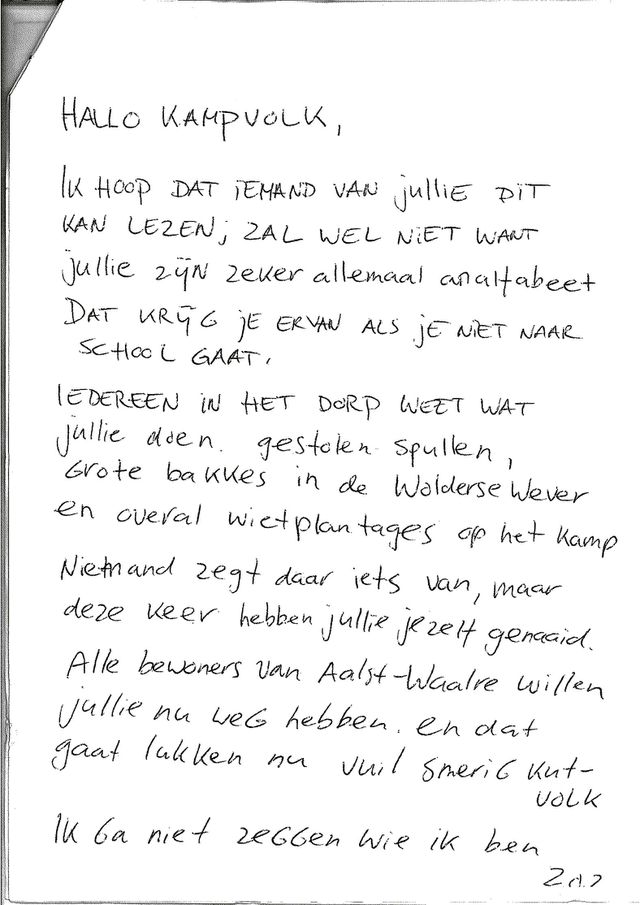 HALLO KAMPVOLK,
IK HOOP DAT iEMAND VAN jullIE DIT
KAN LEZEN; ZAL WEL NIET WANT
jullie zijn zeker allemaal analfabeet
DAT KRIJG jE ERVAN ALS jE NIET NAAR
SCHOOL GAAT.
IEDEREEN IN HET DORP WEET WAT
jullie doen. gestolen spullen,
Grote bakkes in de Wolderse Wever
en overal wietplantages op het kamp
Niemand zegt daar iets van, maar
deze keer hebben jullie jezelf genaaid.
Alle bewoners van Aalst-Waalre willen
jullie nu weG hebben. en dat
gaat lukken nu vuil smeriG kut-
VOLK
IK Ga niet zeGGen wie ik ben